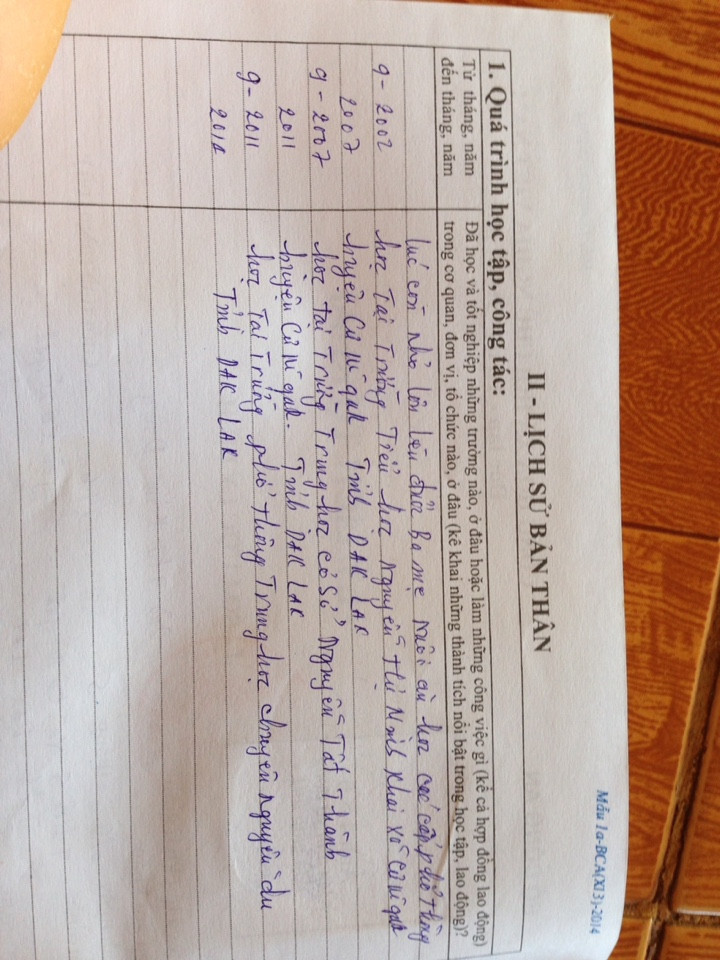 Mẫu 1a-BCA(X13)-2014
II - LỊCH SỬ BẢN THÂN
1. Quá trình học tập, công tác:
Từ tháng, năm
đến tháng, năm
Đã học và tốt nghiệp những trường nào, ở đâu hoặc làm những công việc gì (kể cả hợp đồng lao động)
trong cơ quan, đơn vị, tổ chức nào, ở đâu (kê khai những thành tích nổi bật trong học tập, lao động)?
Lúc còn nhỏ lớn lên được Ba mẹ nuôi ăn học các cấp phổ thông
9 - 2002 học Tại Trường Tiểu học Nguyễn Thị Minh Khai xã
2007 huyện Cư M'gar Tỉnh DAK LAK
9 - 2007 học tại Trường Trung học cơ sở Nguyễn Tất Thành
2011 huyện Cư M'gar. Tỉnh DAK LAK
9 - 2011 học Tại Trường phổ thông Trung học chuyên Nguyễn du
Tỉnh DAK LAK